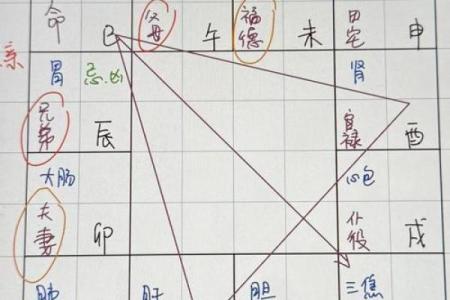 命 巳 父母 午 福德 未 田宅 申
胃 忌.凶 肾
兄弟 辰 官禄 酉
大肠 心包
夫妻 卯 仆役 戌
肺 肝 胆 三焦